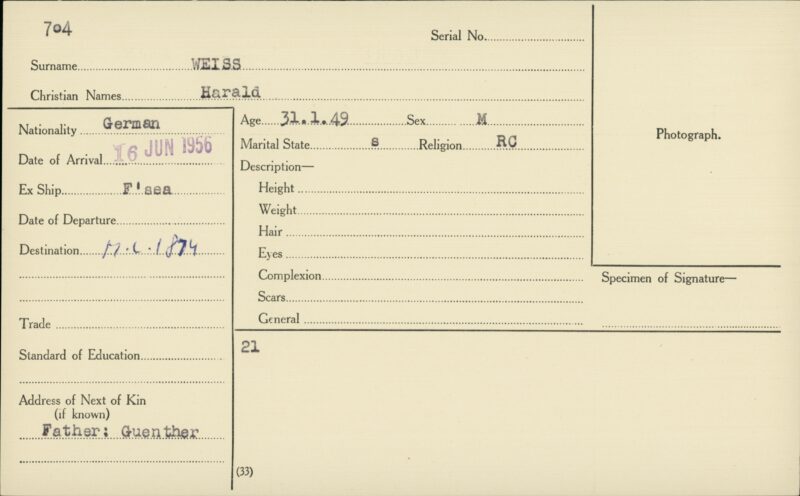 704
Serial No.
Surname WEISS
Christian Names Harald
Nationality German
Date of Arrival 16 JUN 1956
Ex Ship F'sea
Date of Departure
Destination M.C. 1874
Trade
Standard of Education
Address of Next of Kin
(if known)
Father: Guenther
Age 31.1.49 Sex M
Marital State s Religion RC
Description—
Height
Weight
Hair
Eyes
Complexion
Scars
General
21
(33)
Photograph.
Specimen of Signature—